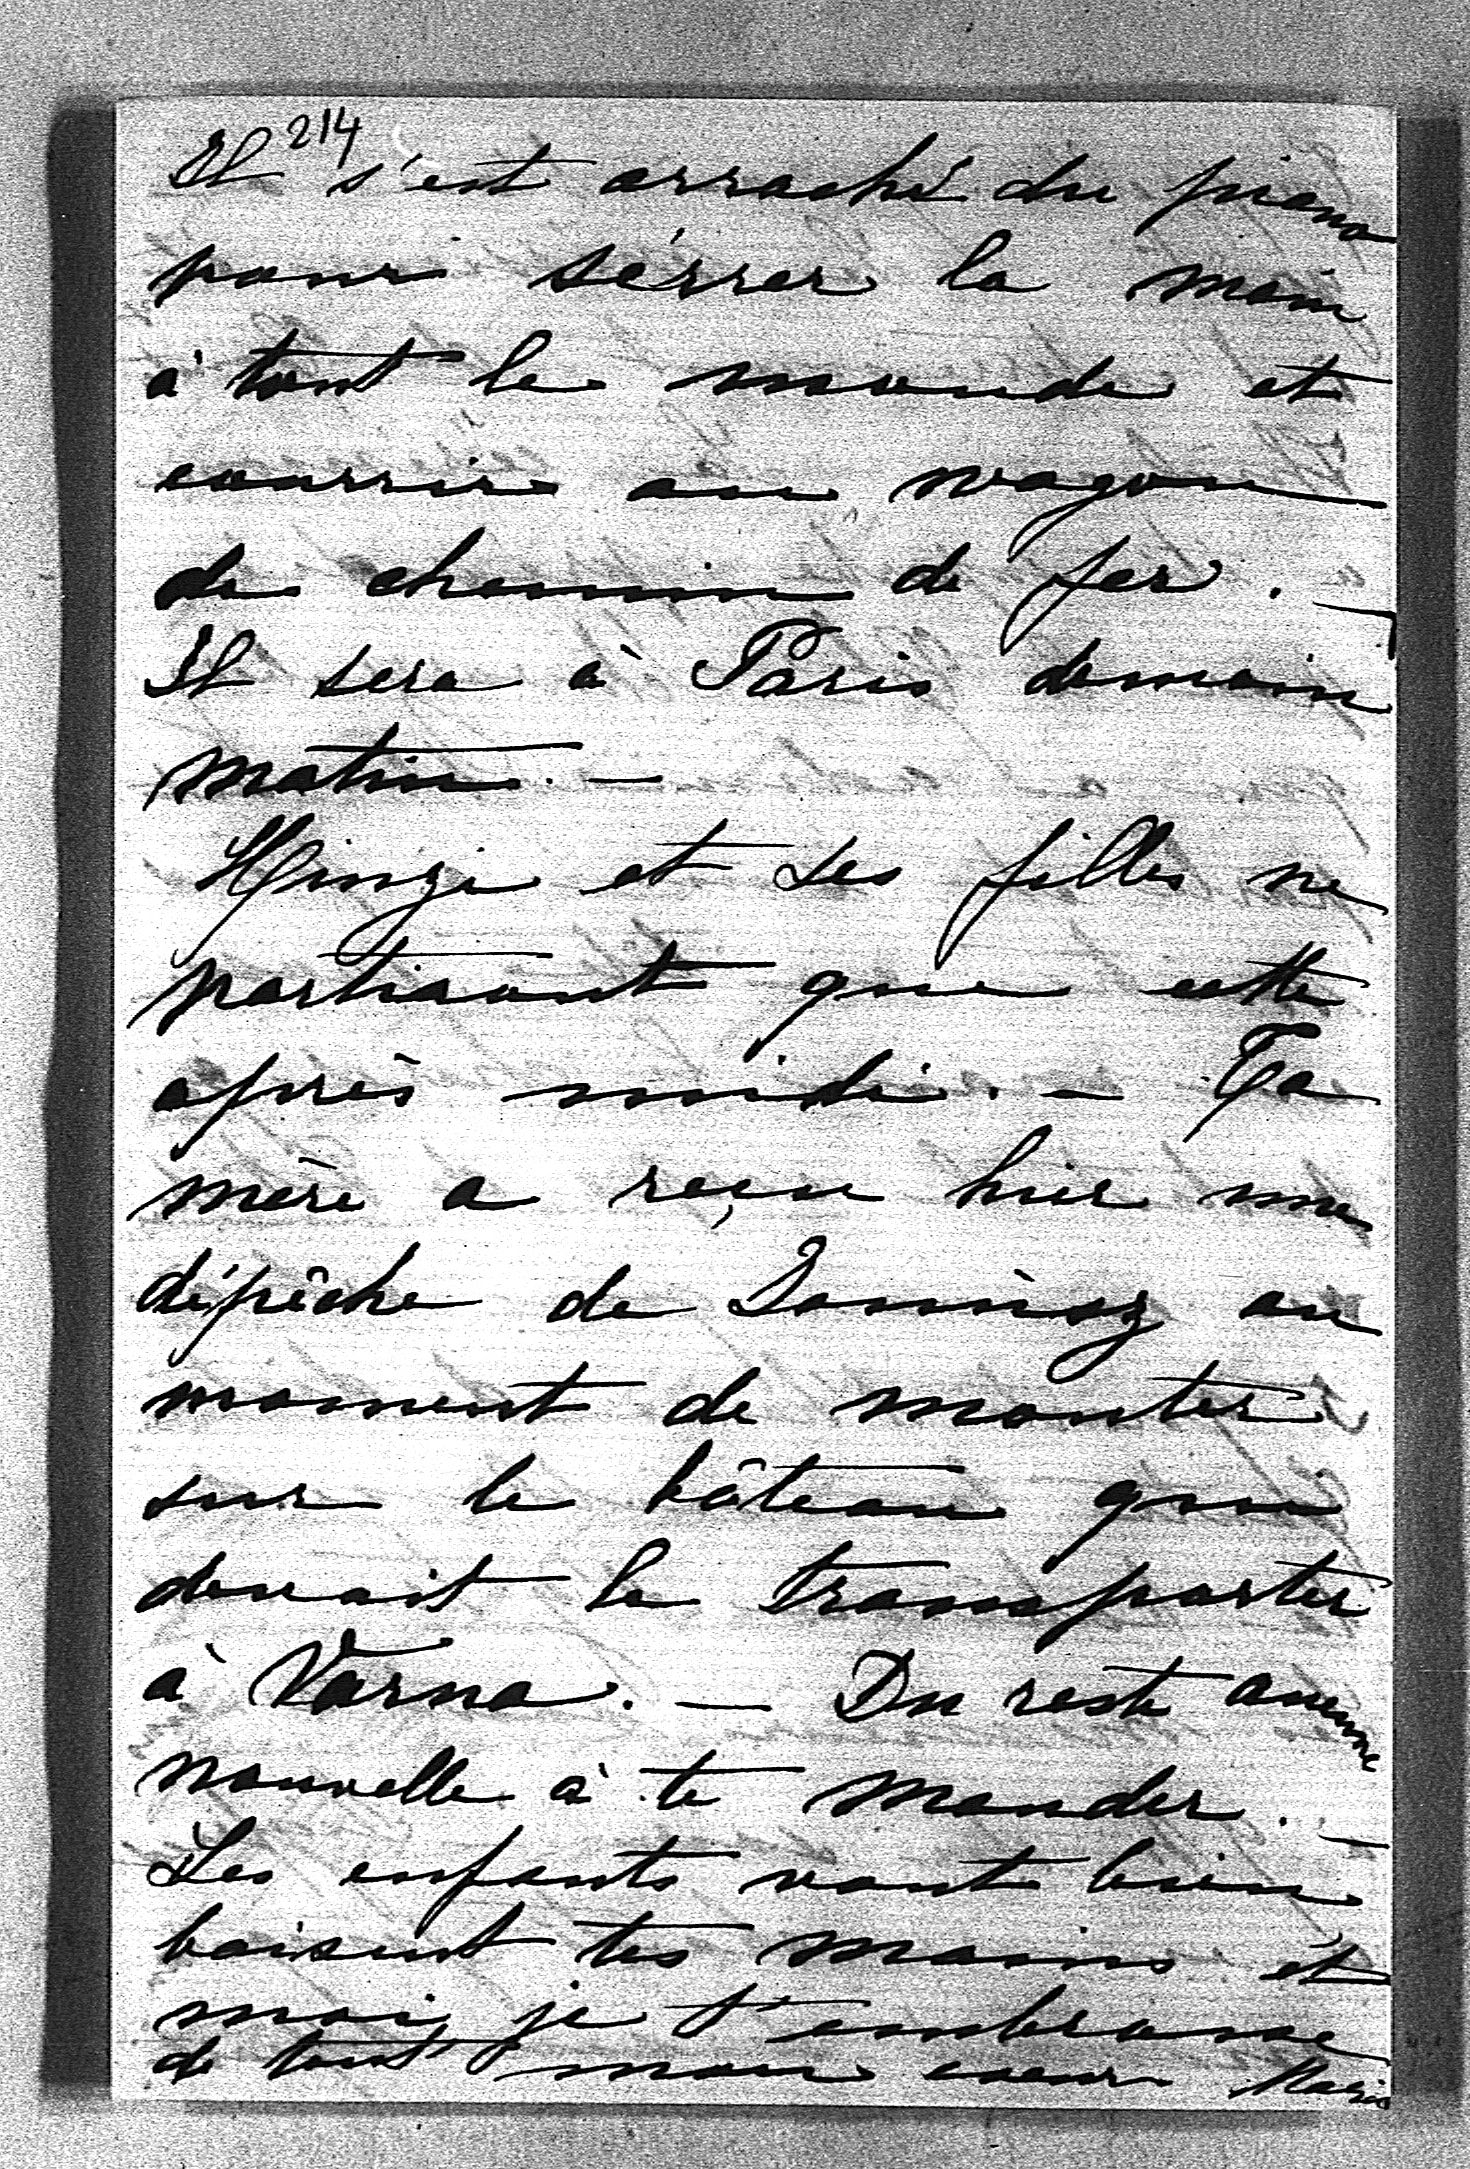 214
Il s'est arraché du piano
pour sérrer la main
à tout le monde et
courrir au wagon
du chemin de fer. —
Il sera à Paris demain
matin. —
et ses filles ne
partiront que cette
après midi. — Ta
mère a reçu hier une
dépêche de au
moment de monter
sur le bâteau qui
devait le transporter
à Varna. — Du reste aucune
nouvelle à te mander. —
Les enfants vont bien
baisent tes mains et
moi je t'embrasse
de tout mon coeur Marie